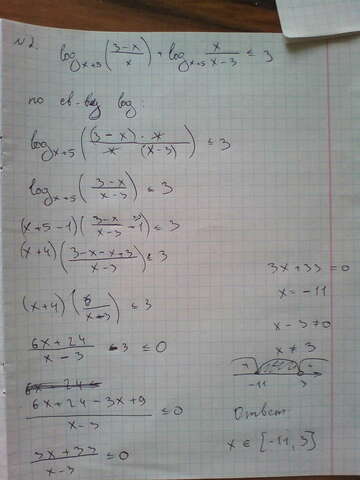 N2. log_{x+5} ((3-x)/x) + log_{x+5} (x/(x-3)) ≤ 3
по св-ву log:
log_{x+5} ((3-x)·x / x (x-3)) ≤ 3
log_{x+5} ((3-x)/(x-3)) ≤ 3
(x+5-1)((3-x)/(x-3) - 1) ≤ 3
(x+4)((3-x-x+3)/(x-3)) ≤ 3
(x+4)(6/(x-3)) ≤ 3
(6x+24)/(x-3) - 3 ≤ 0
6x-24 ≤
(6x+24-3x+9)/(x-3) ≤ 0
(3x+33)/(x-3) ≤ 0
3x+33=0
x=-11
x-3≠0
x≠3
+ - +
-11 3
Ответ:
x∈[-11,3]